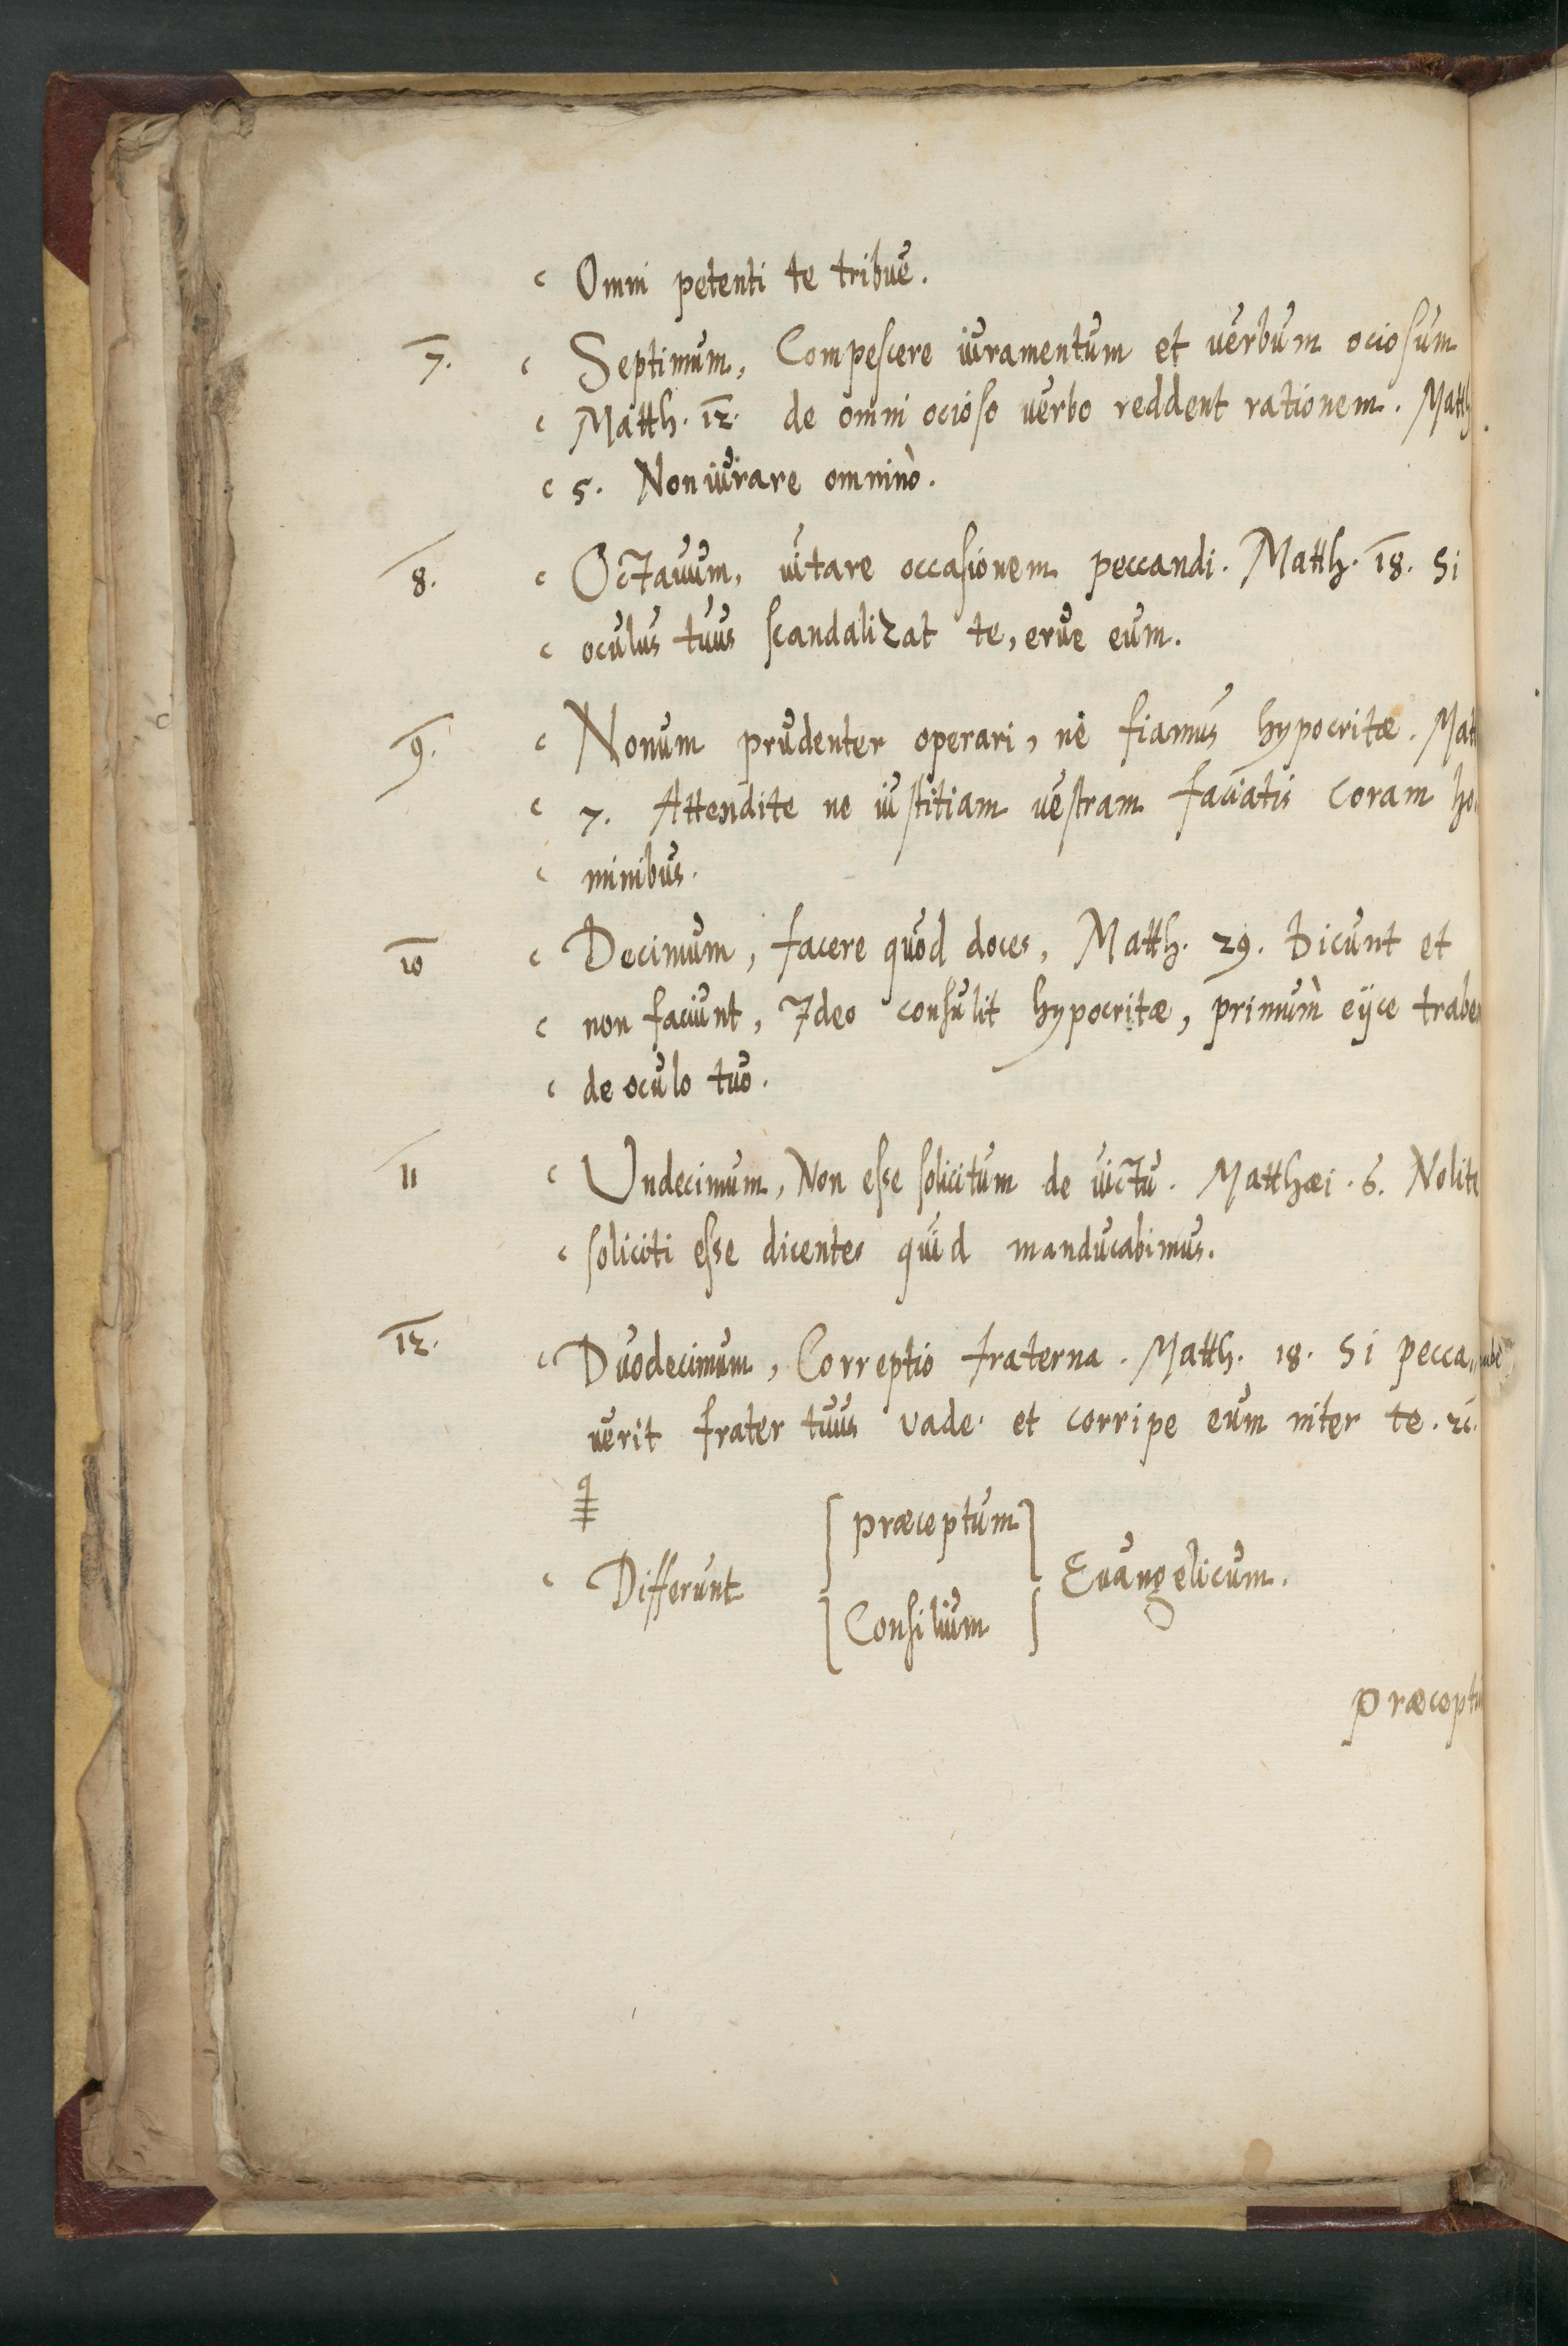 Omni petenti te tribue.
7. Septimum, Compescere iuramentum et verbum ociosum
Matth. 12. de omni ocioso verbo reddent rationem. Matth
5. Non iurare omninò.
8. Octauum, uitare occasionem peccandi. Matth. 18. Si
oculus tuus scandalizat te, erue eum.
9. Nonum prudenter operari, ne fiamus hypocritæ. Mat
7. Attendite ne iustitiam vestram faciatis coram ho
minibus.
10 Decimum, facere quod doces, Matth. 29. Dicunt et
non faciunt, Ideo consulit hypocritæ, primum eijce trabe
de oculo tuo.
11 Undecimum, Non esse solicitum de uictu. Matthæi. 6. Nolite
soliciti esse dicentes quid manducabimus.
12. Duodecimum, Correptio fraterna. Matth. 18. Si pecca
uerit frater tuus vade et corripe eum inter te. &c.
præceptum
Differunt Euangelicum.
Consilium
Præceptu